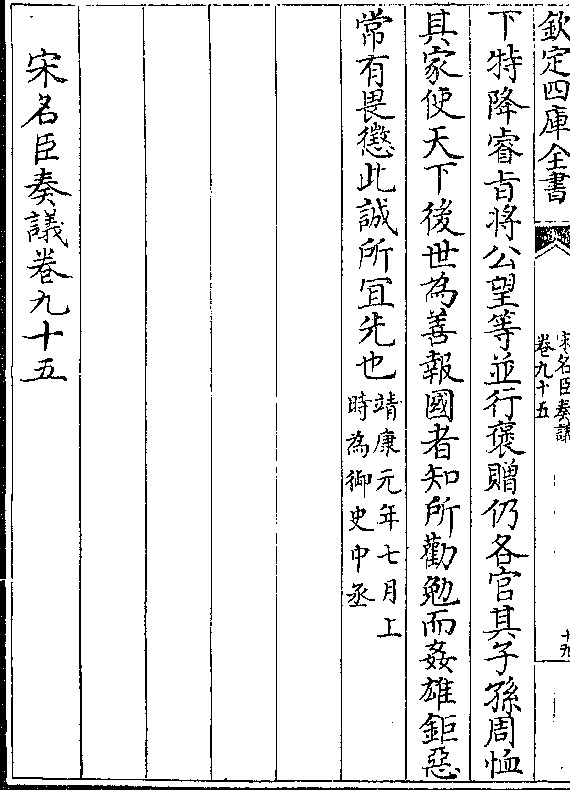 欽定四庫全書
宋名臣奏議
卷九十五
十九
下特降睿旨將公望等並行褒贈仍各官其子孫周恤
其家使天下後世為善報國者知所勸勉而姦雄鉅惡
常有畏懲此誠所宜先也
靖康元年七月上
時為御史中丞
宋名臣奏議卷九十五